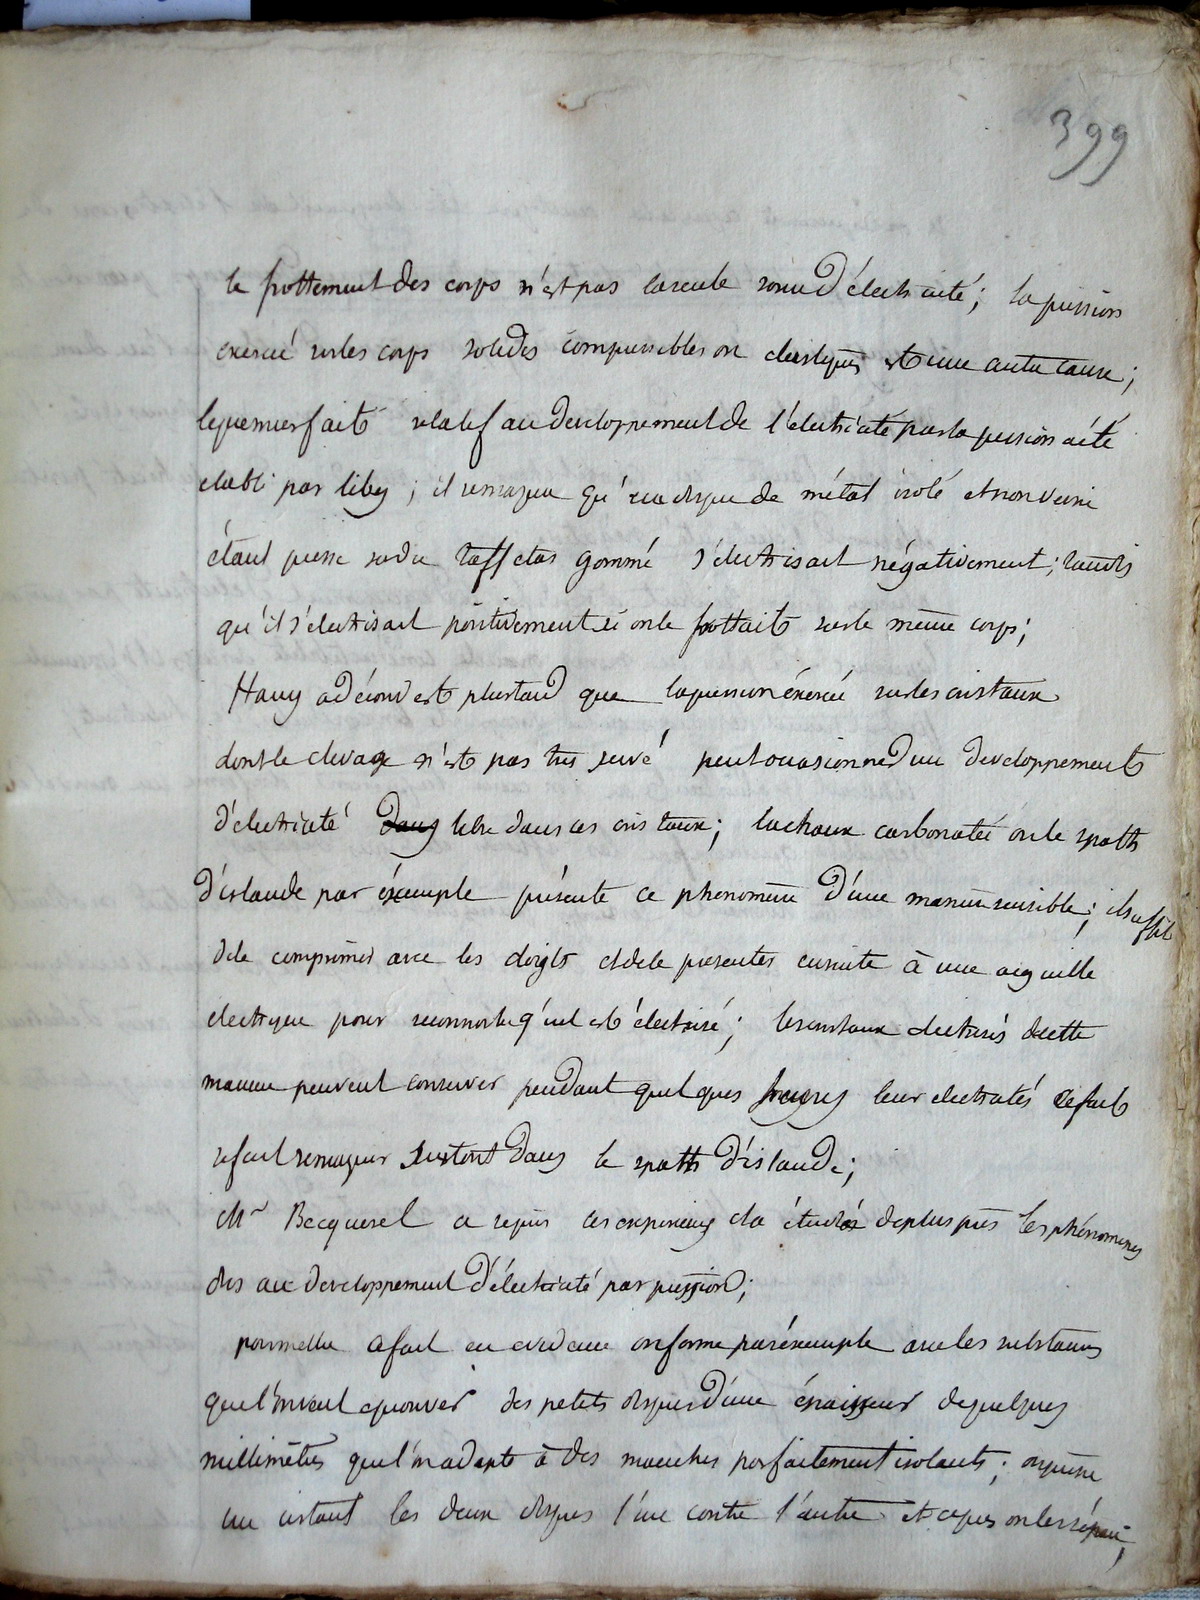 399
le frottement des corps n'est pas la seule source d'électricité; la pression
exercée sur les corps solides compressibles ou élastiques est une autre cause;
le premier fait relatif au developpement de l'électricité par la pression a été
établi par libes; il remarqua qu'un disque de métal isolé et non verni
étant pressé sur du taffetas gommé s'électrisait négativement; tandis
qu'il s'électrisait positivement si on le frottait sur le même corps;
Hauy a découvert plus tard que la pression éxercée sur les cristaux
dont le clivage n'est pas très serré peut occasionner un developpement
d'électricité dans libre dans ces cristaux; la chaux carbonatée ou le spath
d'islande par éxemple présente ce phenomène d'une manière sensible; il suffit
de le comprimer avec les doigts et de le presenter ensuite à une aiguille
électrique pour reconnoitre qu'il est électrisé; les cristaux électrisés de cette
manière peuvent conserver pendant quelques heures leur électricité ce fait
se fait remarquer surtout dans le spath d'islande;
Mr Becquerel a repris ces experiences et a étudié de plus près les phénomènes
dus au developpement d'électricité par pression;
pour mettre ce fait en evidence on forme par éxemple avec les substances
que l'on veut éprouver des petits disques d'une épaisseur de quelques
millimètres que l'on adapte à des manches parfaitement isolants; on presse
un instant les deux disques l'un contre l'autre et après on les sépare;